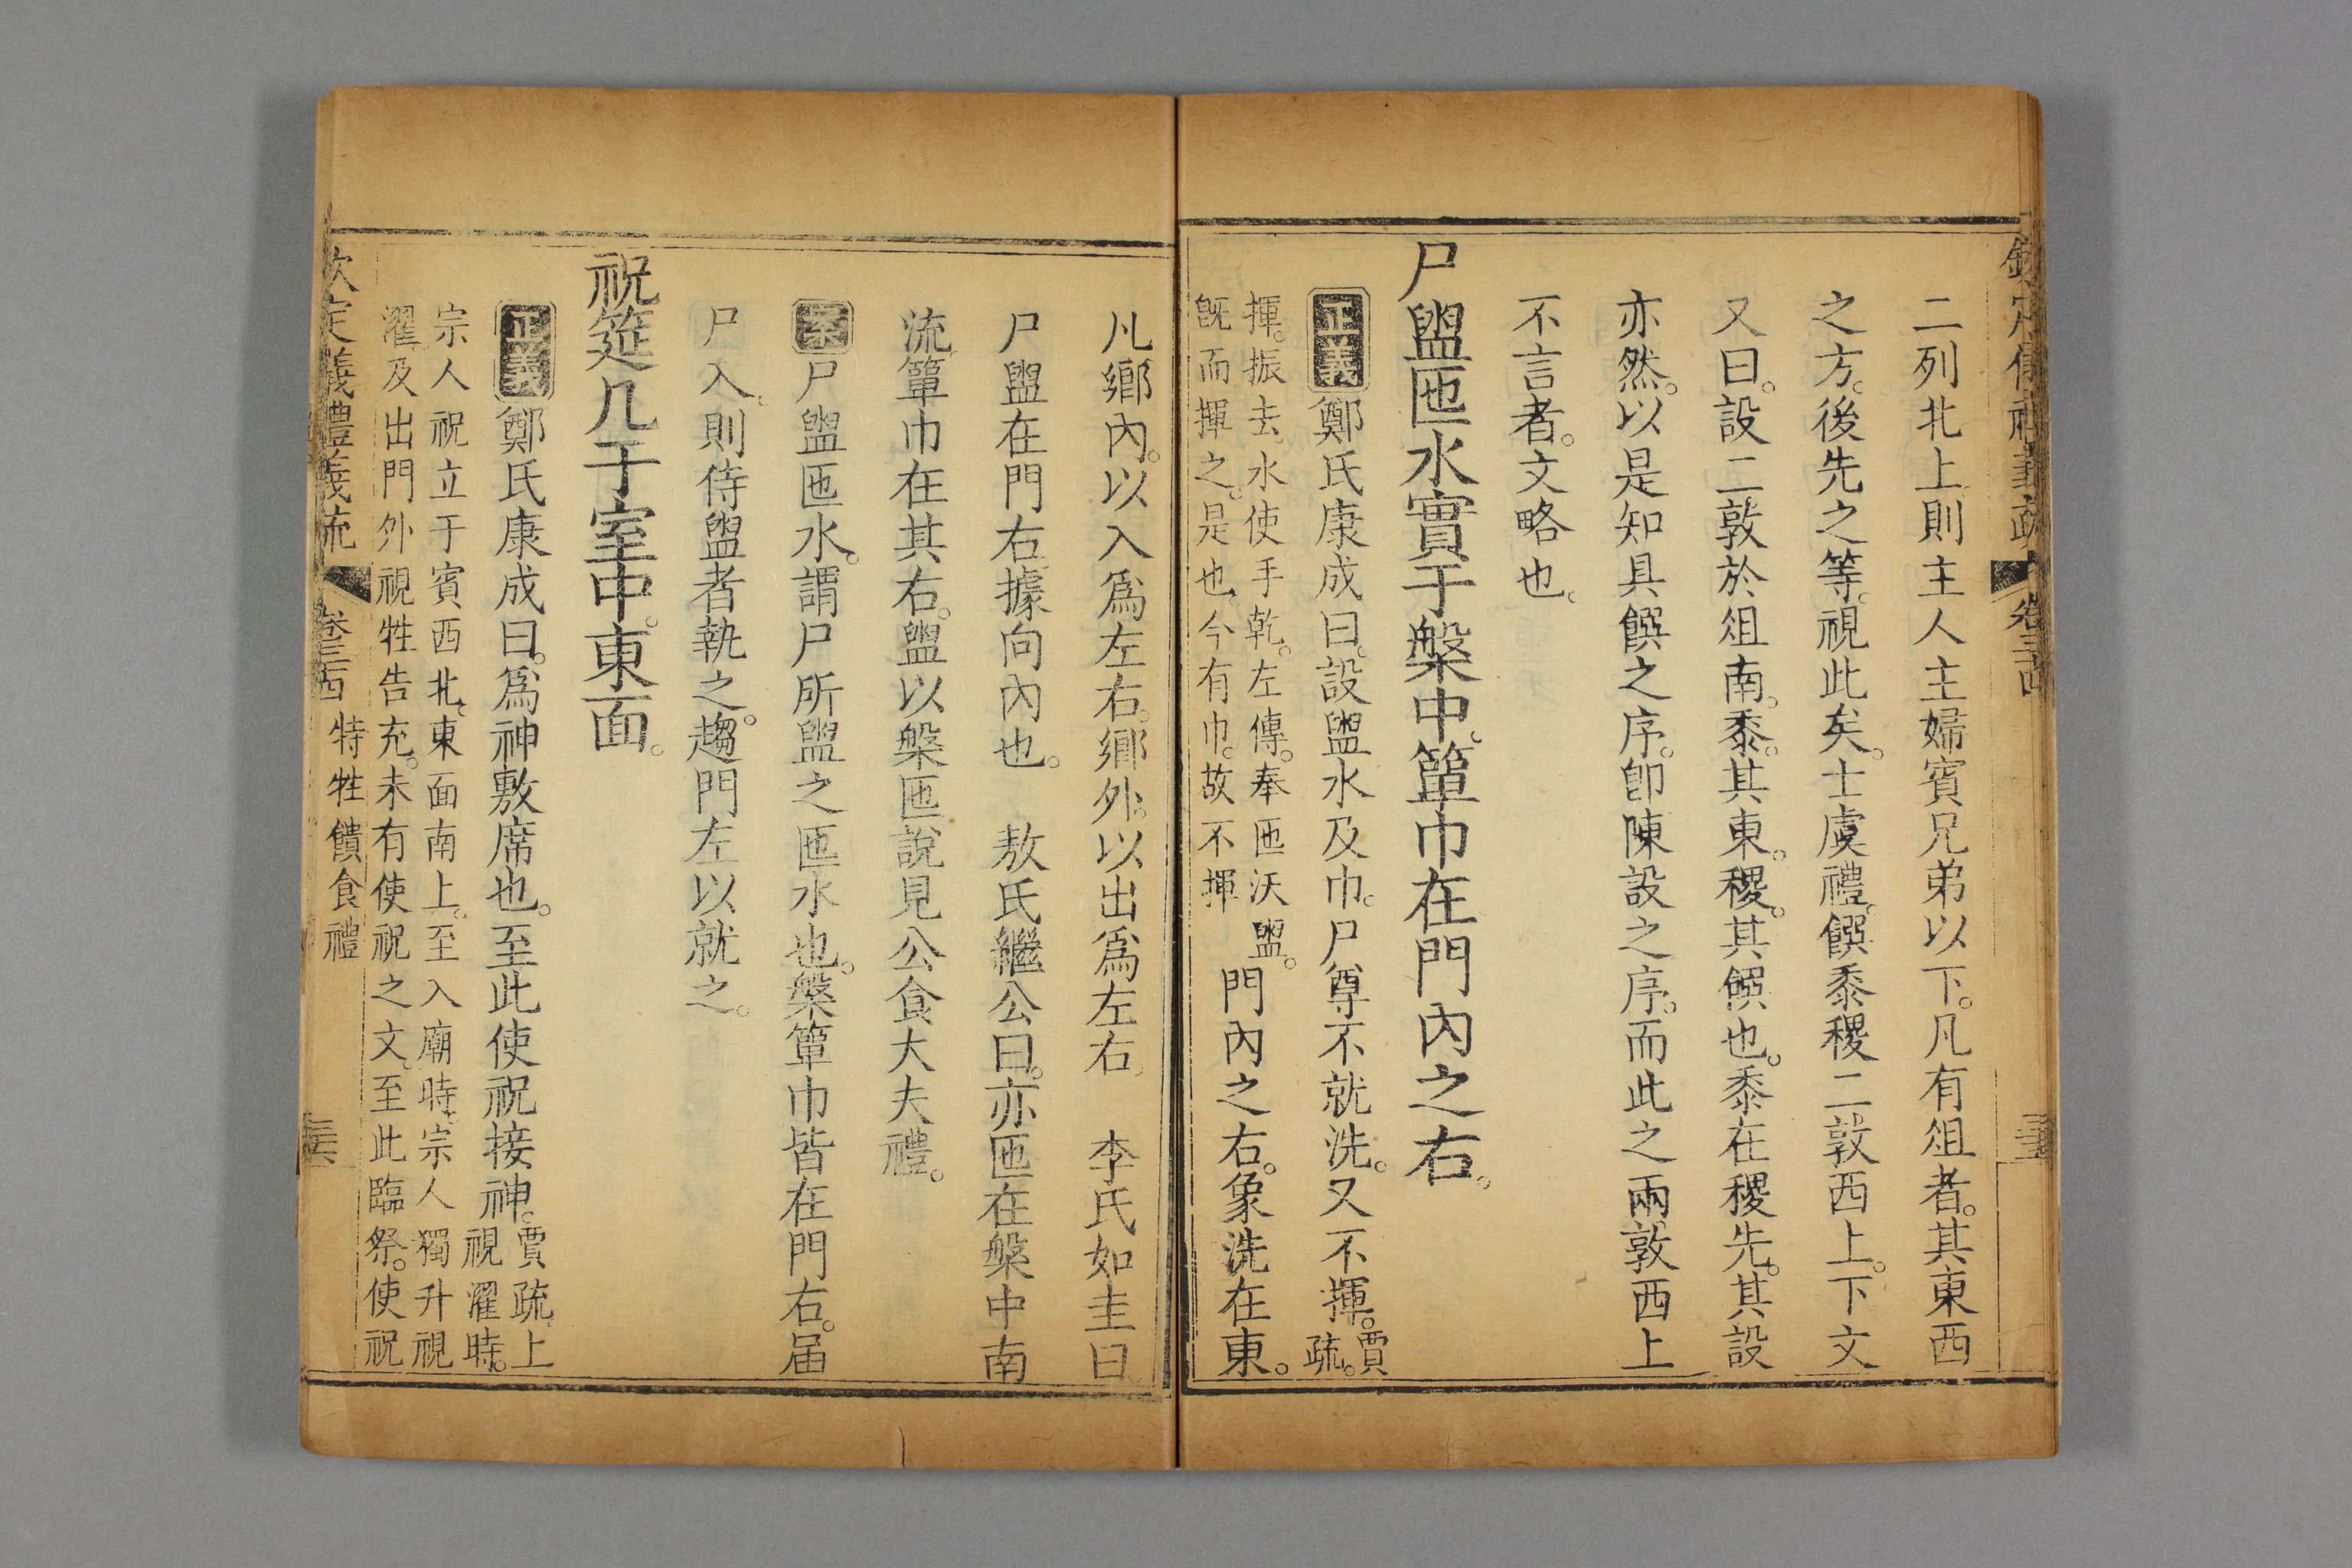 欽定儀禮義疏 卷三十四
二列北上則主人主婦賓兄弟以下。凡有俎者。其東西
之方。後先之等。視此矣。士虞禮。饌黍稷二敦西上。下文
又曰。設二敦於俎南。黍。其東。稷。其饌也。黍在稷先。其設
亦然。以是知具饌之序。卽陳設之序。而此之兩敦西上
不言者。文略也。
尸盥匜水實于槃中。簞巾在門內之右。
正義鄭氏康成曰。設盥水及巾。尸尊不就洗。又不揮。賈疏。
揮。振去水使手乾。左傳。奉匜沃盥。
旣而揮之。是也。今有巾。故不揮
門內之右。象洗在東。
凡鄉內。以入爲左右。鄉外。以出爲左右。 李氏如圭曰
尸盥在門右。據向內也。 敖氏繼公曰。亦匜在槃中南
流。簞巾在其右。盥以槃匜。說見公食大夫禮。
案尸盥匜水。謂尸所盥之匜水也。槃簞巾皆在門右。届
尸入。則侍盥者執之。趨門左以就之。
祝筵几于室中。東面。
正義鄭氏康成曰。爲神敷席也。至此使祝接神。賈疏。上
視濯時。
宗人祝立于賓西北。東面南上。至入廟時。宗人獨升視
濯及出門外視牲告充。未有使祝之文。至此臨祭。使祝
欽定儀禮義疏 卷三十四 特牲饋食禮